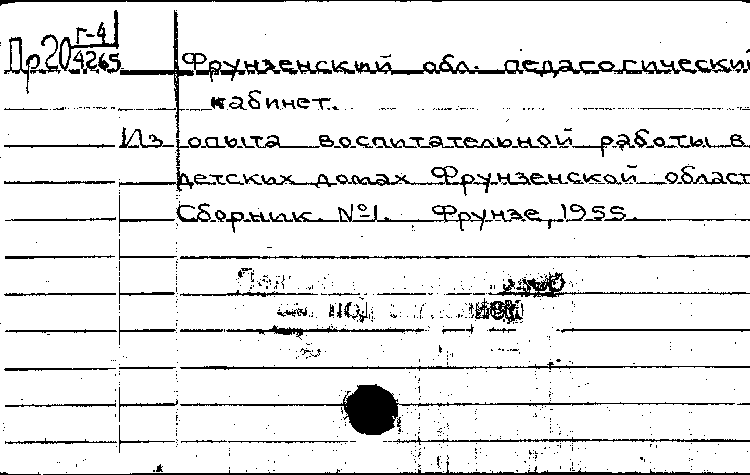 Пр20 Г-4/4265
Фрунзенский обл. педагогический
кабинет.
Из опыта воспитательной работы в
детских домах Фрунзенской област
Сборник. №1. Фрунзе, 1955.
под